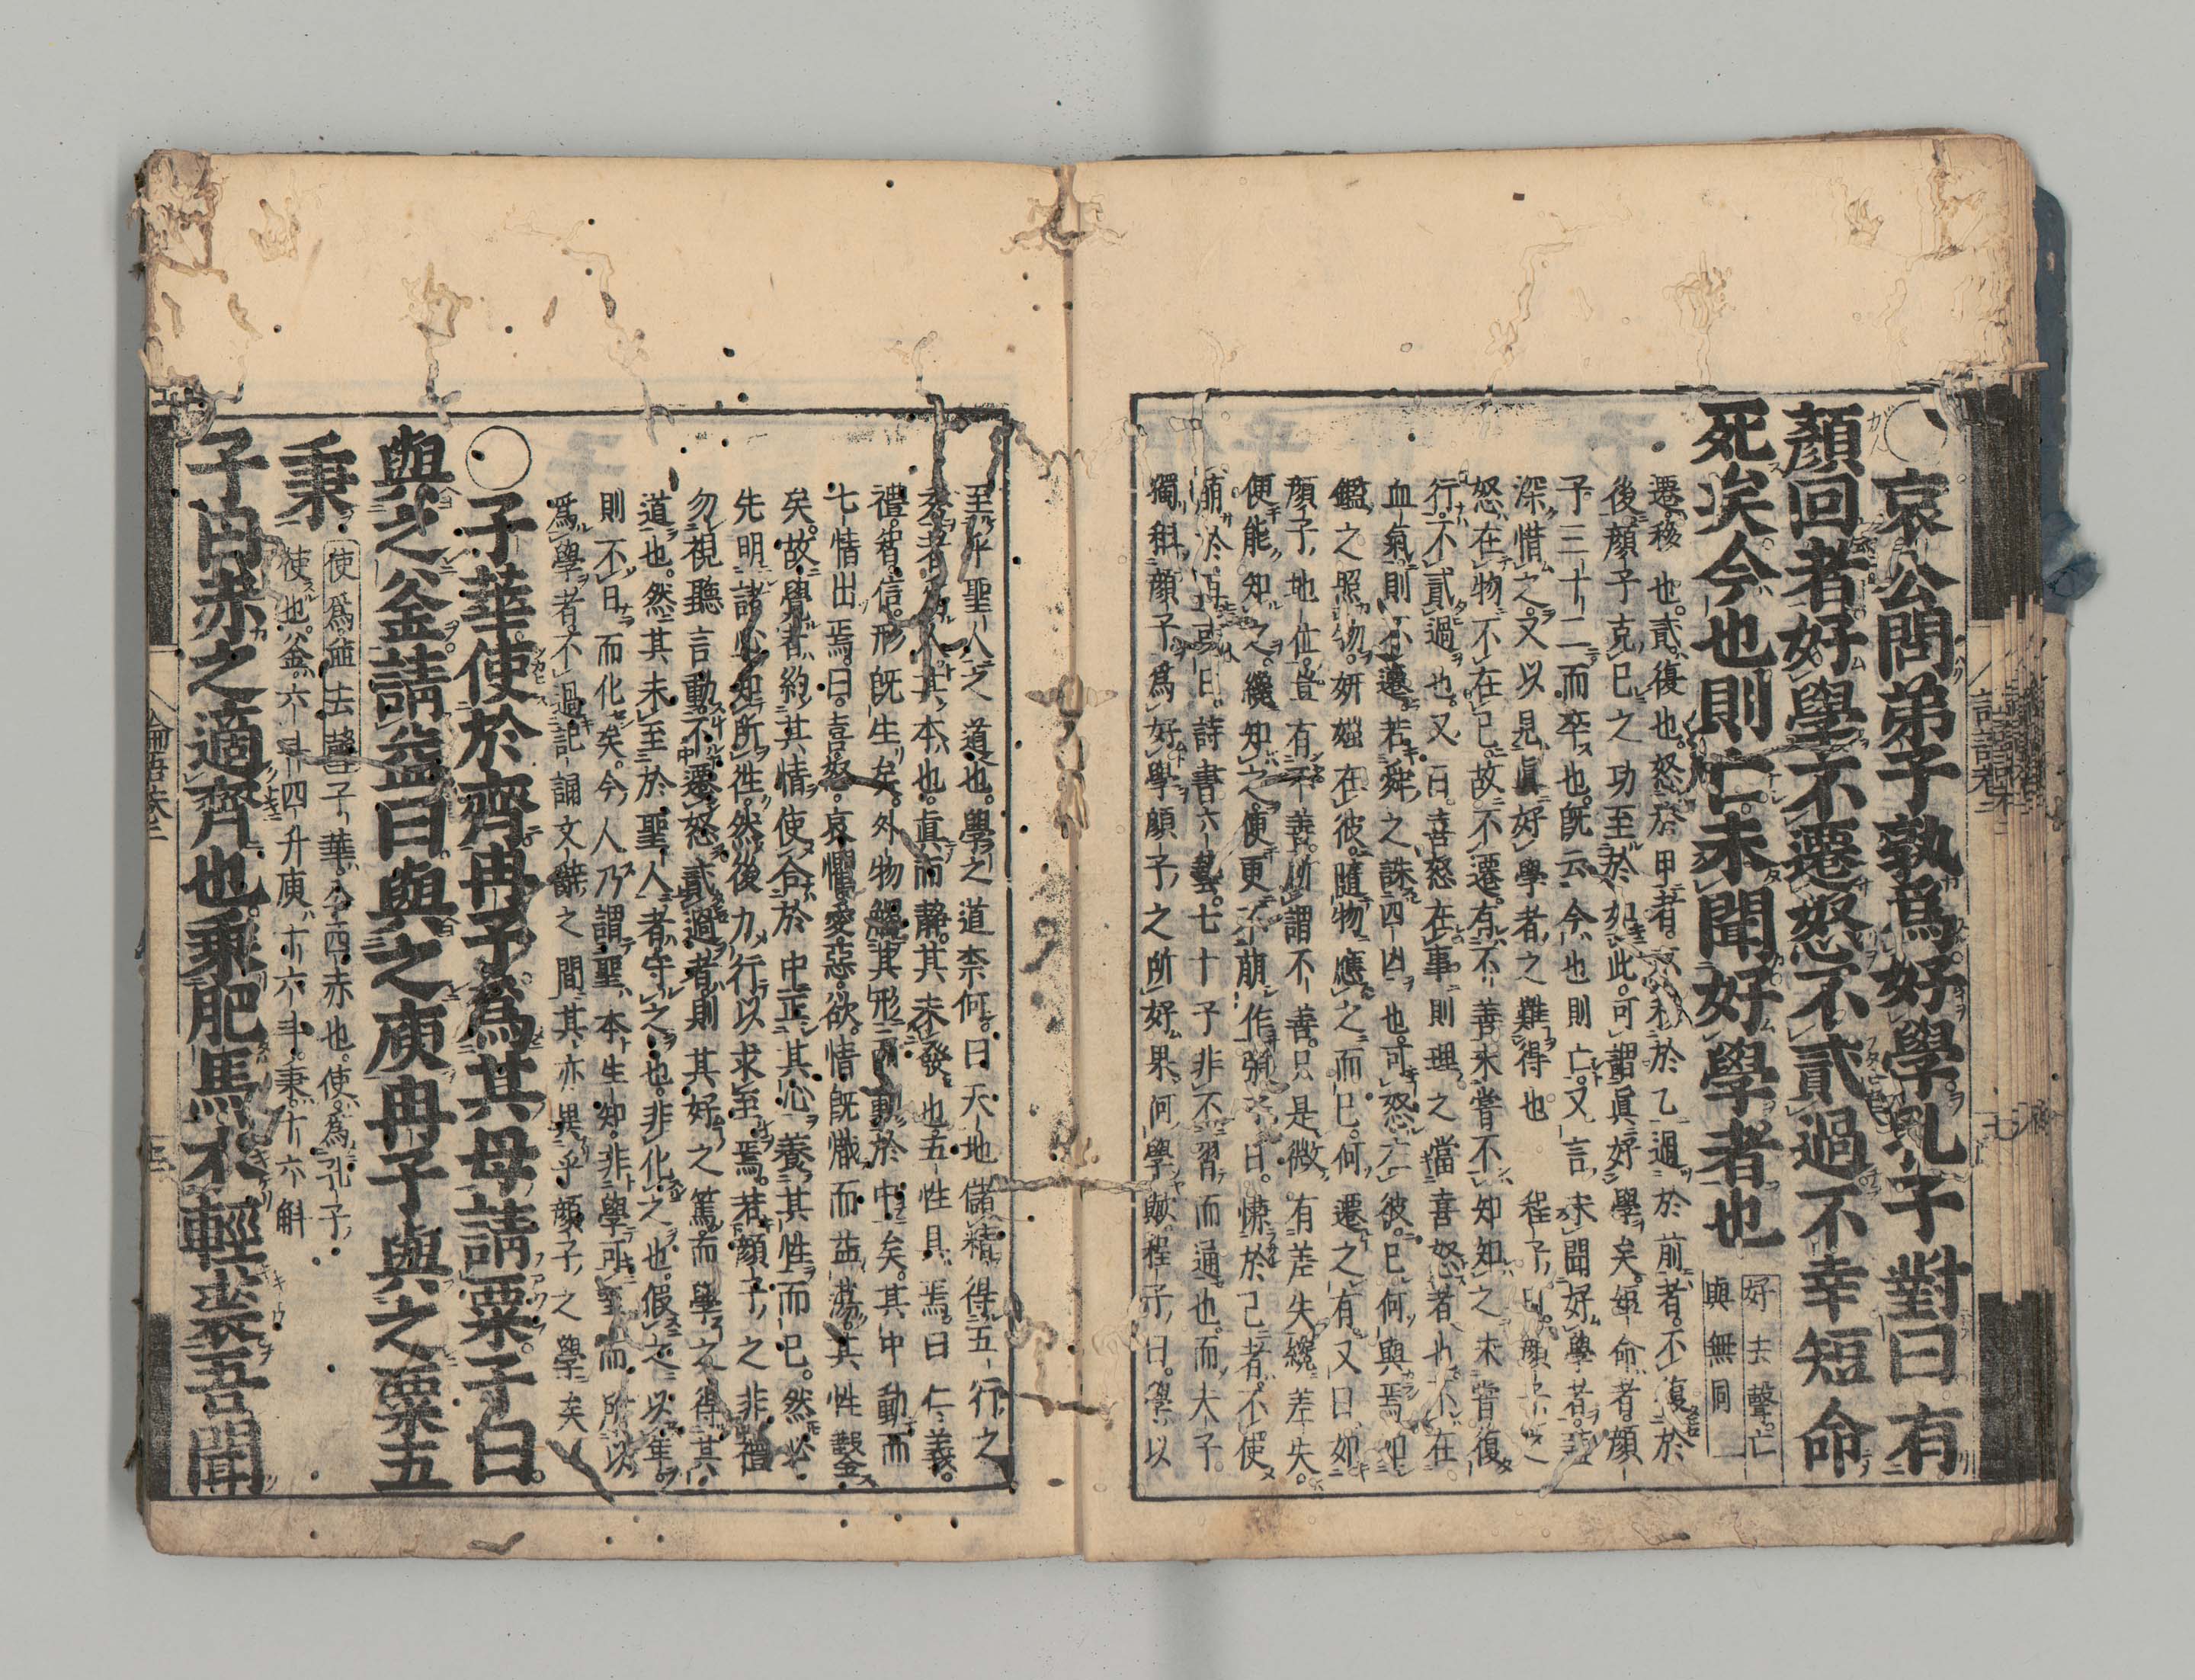 ○哀公問弟子孰爲好學孔子對曰有
顏回者好學不遷怒不貳過不幸短命
死矣今也則亡未聞好學者也
好去聲亡
與無同
遷移也貳復也怒於甲者不移於乙過於前者不復於
後顏子克已之功至於如此可謂眞好學矣短命者顏
子三十二而卒也既云今也則亡又言未聞好學者蓋
深惜之又以見眞好學者之難得也 程子曰顏子之
怒在物不在已故不遷有不善未嘗不知知之未嘗復
行不貳過也又曰喜怒在事則理之當喜怒者也不在
血氣則不遷若舜之誅四凶也可怒在彼已何與焉如
鑑之照物妍媸在彼隨物應之而已何遷之有又曰如
顏子地位豈有不善所謂不善只是微有差失纔差失
便能知之纔知之便更不萌作張子曰慊於己者不使
萌於再或曰詩書六藝七十子非不習而通也而夫子
獨稱顏子爲好學顏子之所好果何學歟程子曰學以
至乎聖人之道也學之道柰何曰天地儲精得五行之
秀者爲人其本也眞而靜其未發也五性具焉曰仁義
禮智信形既生矣外物觸其形而動於中矣其中動而
七情出焉曰喜怒哀懼愛惡欲情既熾而益蕩其性鑿
矣故覺者約其情使合於中正其心養其性而已然必
先明諸心知所往然後力行以求至焉若顏子之非禮
勿視聽言動不遷怒貳過者則其好之篤而學之得其
道也然其未至於聖人者守之也非化之也假之以年
則不日而化矣今人乃謂聖本生知非學可至而所以
爲學者不過記誦文辭之間其亦異乎顏子之學矣
○子華使於齊冉子爲其母請粟子曰
與之釜請益曰與之庾冉子與之粟五
秉
使爲並去聲子華公西赤也使爲孔子
使也釜六斗四升庾十六斗秉十六斛
子曰赤之適齊也乘肥馬衣輕裘吾聞
論語卷三